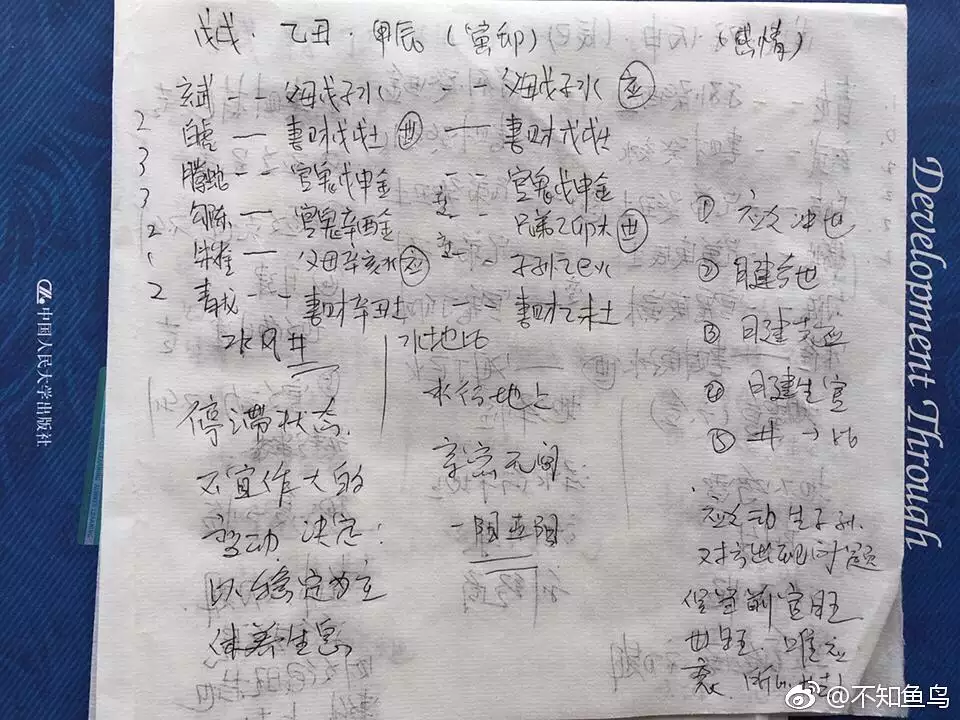 戊戌·乙丑·甲辰(寅卯) (感情)
玄武 -- 父母戊子水 -- 父母戊子水 应
2 白虎 — 妻財戊戌土 世 — 妻財戊戌土
3 螣蛇 -- 官鬼戊申金 -- 官鬼戊申金
3 勾陈 — 官鬼辛酉金 -- 兄弟乙卯木 世
2 朱雀 — 父母辛亥水 应 -- 子孙乙巳火
2 青龙 -- 妻財辛丑土 -- 妻財乙未土
水风井 水地比
停滞状态.
不宜作大的
变动 决定:
以稳定为主
休养生息
水行地上
亲密无间
一阳五阴
① 应爻冲世
② 日建合世
③ 月建克应
④ 月建生官
⑤ 井→比
应爻动生子孙.
对方出现问题
但当前官旺
世旺. 唯应
衰.
Development Through
中国人民大学出版社
@不知鱼鸟